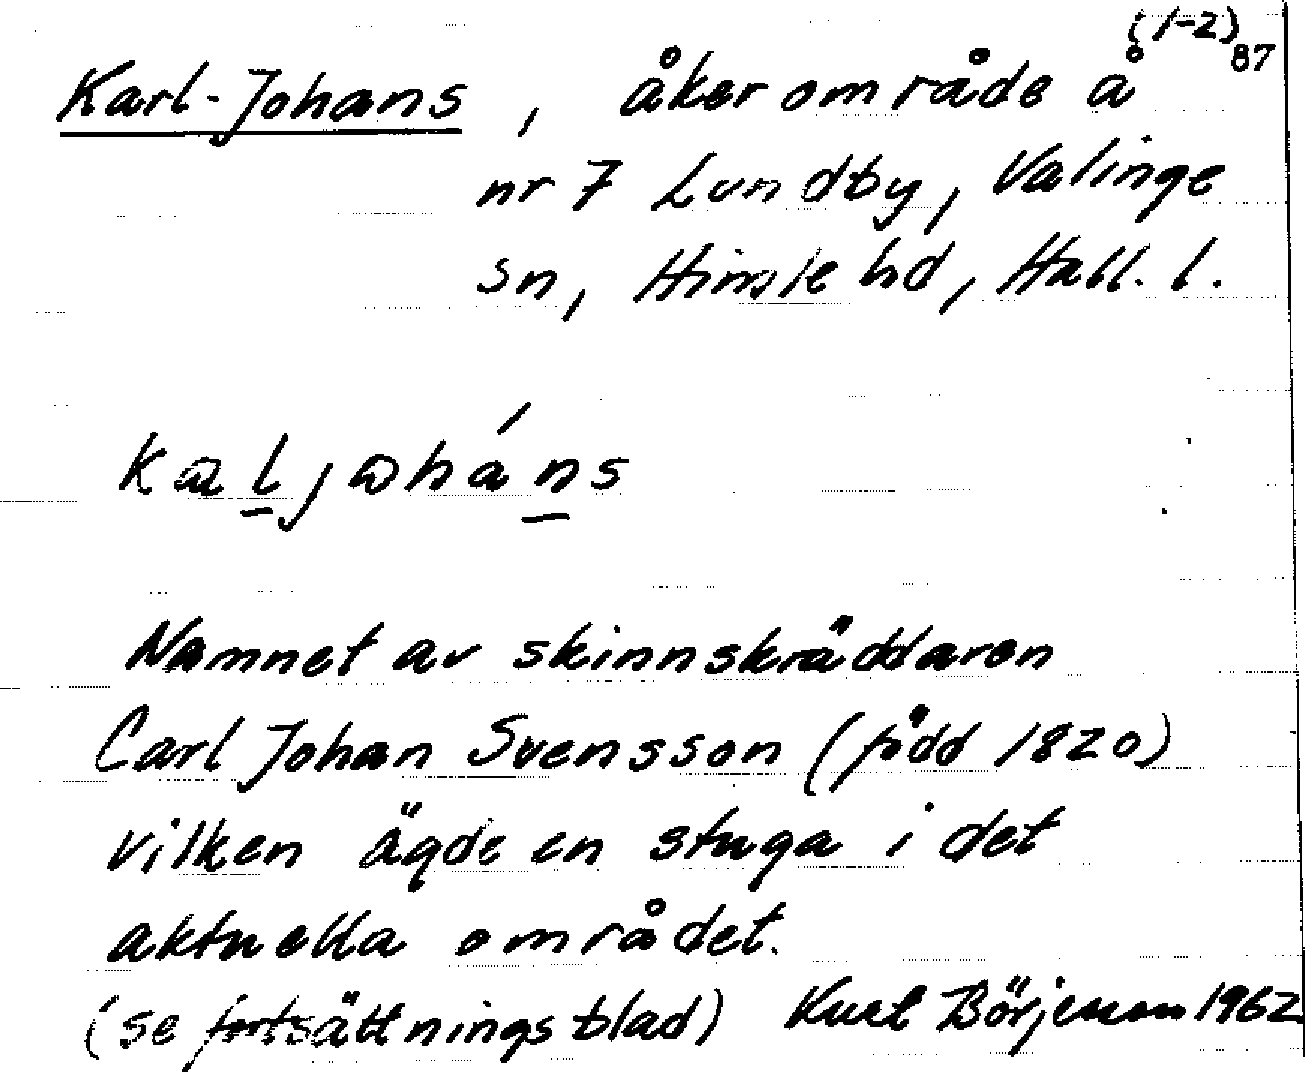 (1-2)
87
Karl-Johans, åkerområde å
nr 7 Lundby, Valinge
sn, Himle hd, Hall. l.
kaljåháns
Namnet av skinnskräddaren
Carl Johan Svensson (född 1820)
vilken ägde en stuga i det
aktuella området.
(se fortsättningsblad) Kurt Börjesson 1962